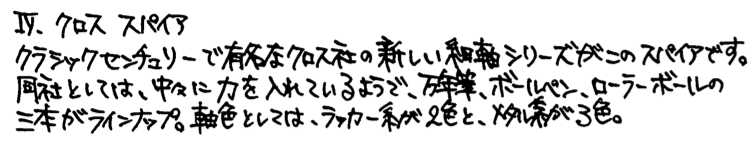 Ⅳ. クロス スパイア
クラシックセンチュリーで有名なクロス社の新しい細軸シリーズがこのスパイアです。
同社としては、中々に力を入れているようで、万年筆、ボールペン、ローラーボールの
三本がラインナップ。軸色としては、ラッカー系が2色と、メタル系が3色。